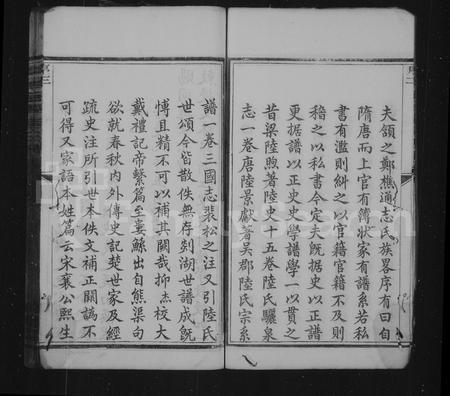 夫頜之鄭樵通志氏族畧序有曰自
隋唐而上官有簿狀家有譜系若私
書有濫則糾之以官籍官籍不及則
稽之以私書今定夫既据史以正譜
更据譜以正史史學譜學一以貫之
昔梁陸煦著陸史十五卷陸氏驪泉
志一卷唐陸景獻著吳郡陸氏宗系
譜一卷三國志裴松之注又引陸氏
世頌今皆散佚無存剡湖世譜成既
愽且精不可以補其闕哉抑杰校大
戴禮記帝繫篇至婁鯀出自熊渠句
欲就春秋內外傳史記楚世家及經
疏史注所引世本佚文補正闕譌不
可得又家語本姓篇云宋襄公熙生
序三